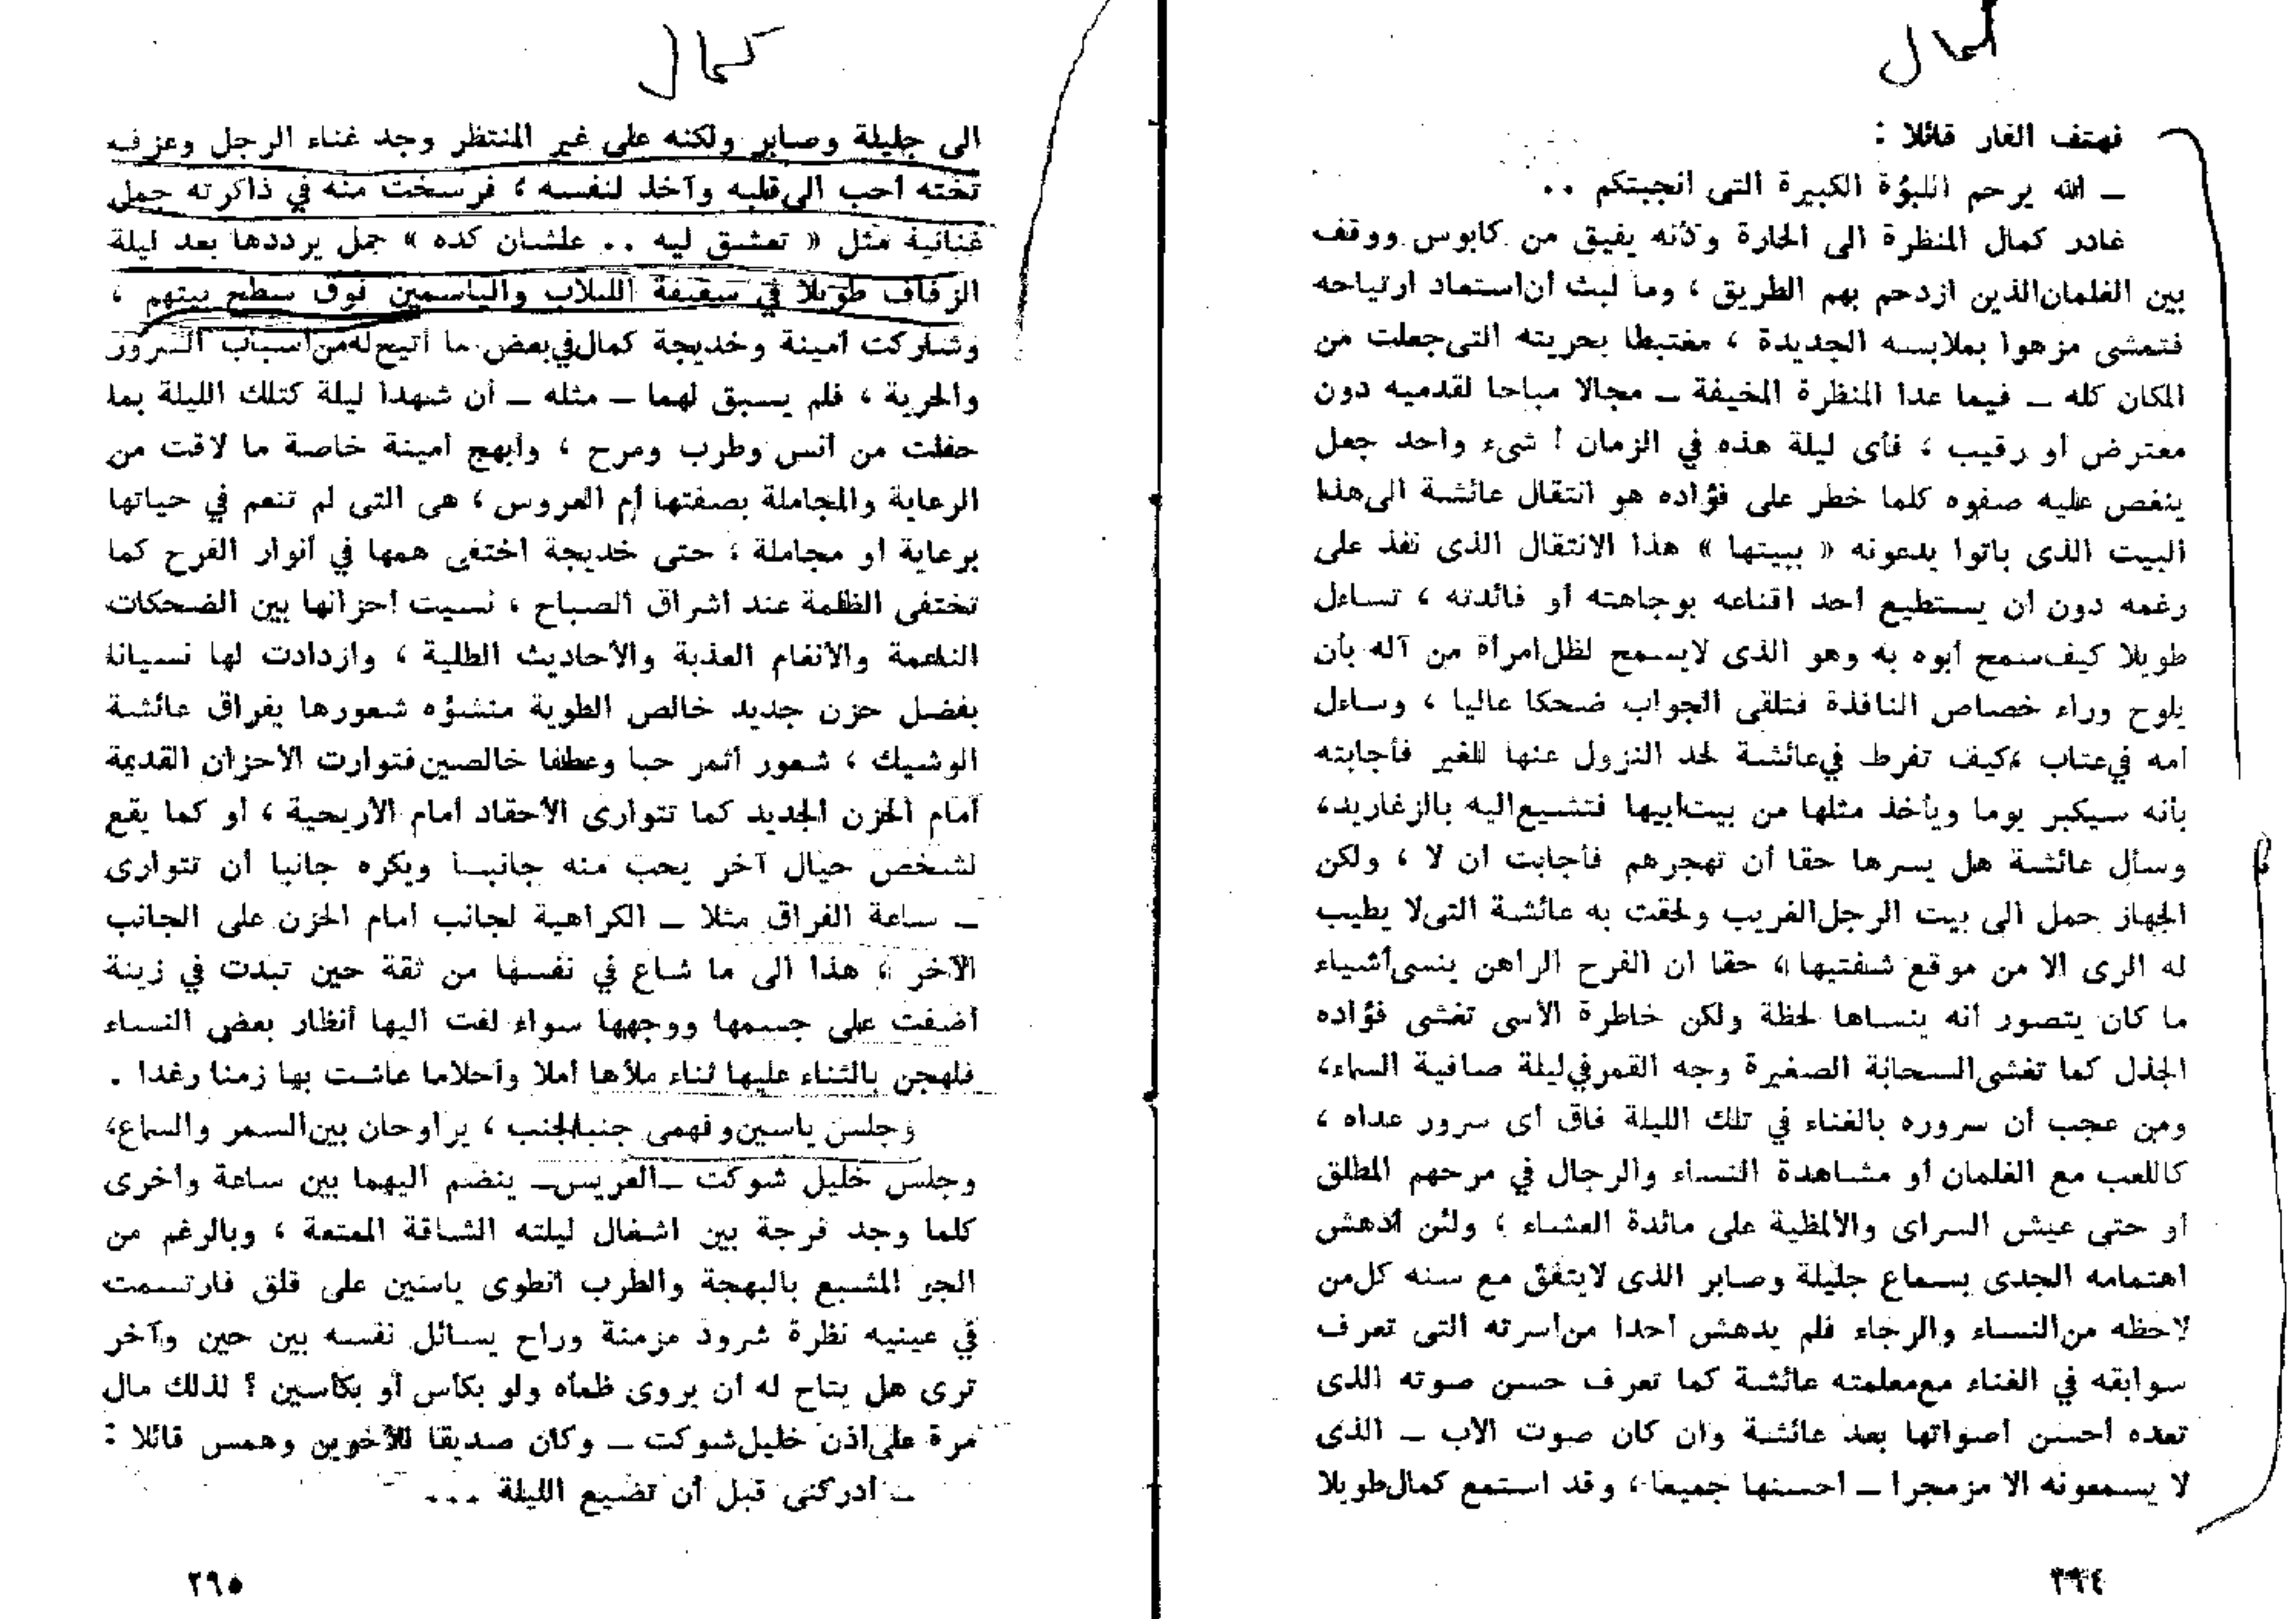 كمال
فهتف الفار قائلا :
ـ الله يرحم اللبؤة الكبيرة التى انجبتكم ..
غادر كمال المنظرة الى الحارة وكأنه يفيق من كابوس ووقف
بين الغلمان الذين ازدحم بهم الطريق ، وما لبث أن استعاد ارتياحه
فتمشى مزهوا بملابسه الجديدة ، مغتبطا بحريته التى جعلت من
المكان كله ـ فيما عدا المنظرة المخيفة ـ مجالا مباحا لقدميه دون
معترض أو رقيب ، فأى ليلة هذه في الزمان ! شىء واحد جعل
ينغص عليه صفوه كلما خطر على فؤاده هو انتقال عائشة الى هذا
البيت الذى باتوا يدعونه « ببيتها » هذا الانتقال الذى نفذ على
رغمه دون ان يستطيع أحد اقناعه بوجاهته أو فائدته ، تساءل
طويلا كيف سمح أبوه به وهو الذى لايسمح لظل امرأة من آله بأن
يلوح وراء خصاص النافذة فتلقى الجواب ضحكا عاليا ، وساءل
امه في عتاب ، كيف تفرط في عائشة لحد النزول عنها للغير فأجابته
بأنه سيكبر يوما ويأخذ مثلها من بيت أبيها فتشيع اليه بالزغاريد،
وسأل عائشة هل يسرها حقا أن تهجرهم فأجابت أن لا ، ولكن
الجهاز حمل الى بيت الرجل الغريب ولحقت به عائشة التى لا يطيب
له الرى الا من موقع شفتيها ، حقا ان الفرح الراهن ينسى أشياء
ما كان يتصور أنه ينساها لحظة ولكن خاطرة الأسى تغشى فؤاده
الجذل كما تغشى السحابة الصغيرة وجه القمر في ليلة صافية السماء،
ومن عجب أن سروره بالغناء في تلك الليلة فاق أى سرور عداه ،
كاللعب مع الغلمان أو مشاهدة النساء والرجال في مرحهم المطلق
أو حتى عيش السراى والالمظية على مائدة العشاء ؛ ولئن أدهش
اهتمامه الجدى بسماع جليلة وصابر الذى لايتفق مع سنه كل من
لاحظه من النساء والرجاء فلم يدهش أحدا من اسرته التى تعرف
سوابقه في الغناء مع معلمته عائشة كما تعرف حسن صوته الذى
تعده أحسن أصواتها بعد عائشة وان كان صوت الاب ـ الذى
لا يسمعونه الا مزمجرا ـ احسنها جميعا ، وقد استمع كمال طويلا
٢٩٤
كمال
الى جليلة وصابر ولكنه على غير المنتظر وجد غناء الرجل وعزف
تخته أحب الى قلبه وآخذ لنفسه ؛ فرسخت منه في ذاكرته جمل
غنائية مثل « تعشق ليه .. علشان كده » جمل يرددها بعد ليلة
الزفاف طويلا في سقيفة اللبلاب والياسمين فوق سطح بيتهم ،
وشاركت أمينة وخديجة كمال في بعض ما أتيح له من أسباب السرور
والحرية ، فلم يسبق لهما ـ مثله ـ أن شهدا ليلة كتلك الليلة بما
حفلت من أنس وطرب ومرح ، وأبهج أمينة خاصة ما لاقت من
الرعاية والمجاملة بصفتها أم العروس ، هى التى لم تنعم في حياتها
برعاية أو مجاملة ، حتى خديجة اختفى همها في أنوار الفرح كما
تختفى الظلمة عند اشراق الصباح ، نسيت أحزانها بين الضحكات
الناعمة والأنغام العذبة والأحاديث الطلية ، وازدادت لها نسيانا
بفضل حزن جديد خالص الطوية منشؤه شعورها بفراق عائشة
الوشيك ، شعور أثمر حبا وعطفا خالصين فتوارت الأحزان القديمة
أمام الحزن الجديد كما تتوارى الأحقاد أمام الأريحية ، أو كما يقع
لشخص حيال آخر يحب منه جانبا ويكره جانبا أن تتوارى
ـ ساعة الفراق مثلا ـ الكراهية لجانب أمام الحزن على الجانب
الآخر ، هذا الى ما شاع في نفسها من ثقة حين تبدت في زينة
أضفت على جسمها ووجهها سواء لفت اليها أنظار بعض النساء
فلهجن بالثناء عليها ثناء ملأها أملا وأحلاما عاشت بها زمنا رغدا .
وجلس ياسين وفهمى جنبا لجنب ، يراوحان بين السمر والسماع،
وجلس خليل شوكت ـ العريس ـ ينضم اليهما بين ساعة وأخرى
كلما وجد فرجة بين اشغال ليلته الشاقة الممتعة ، وبالرغم من
الجو المشبع بالبهجة والطرب انطوى ياسين على قلق فارتسمت
في عينيه نظرة شرود مزمنة وراح يسائل نفسه بين حين وآخر
ترى هل يتاح له أن يروى ظمأه ولو بكأس أو بكأسين ؟ لذلك مال
مرة على اذن خليل شوكت ـ وكان صديقا للأخوين وهمس قائلا :
ـ أدركنى قبل أن تضيع الليلة ...
٢٩٥